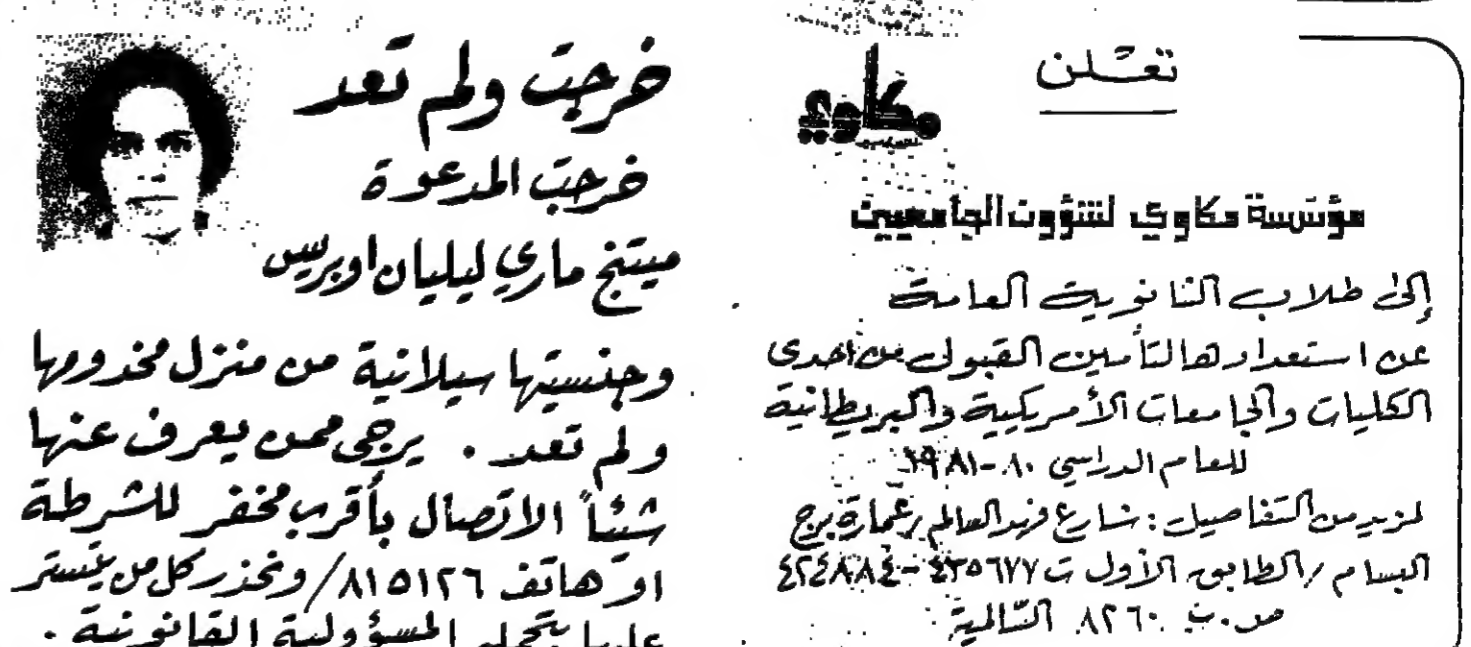 تعلن
مكاوي
مؤسسة مكاوي لشؤون الجامعيين
إلى طلاب الثانوية العامة
عن استعدادها لتأمين القبول من احدى
الكليات والجامعات الأمريكية والبريطانية
للعام الدراسي ٨٠-١٩٨١
لمزيد من التفاصيل: شارع فهد السالم، عمارة برج
البسام / الطابق الأول ت ٤٣٥٦٧٧ - ٤٢٤٨٨٤
ص.ب ٨٢٦٠ السالمية
خرجت ولم تعد
خرجت المدعوة
ميتنج ماري ليليان اوبريس
وجنسيتها سيلانية من منزل مخدومها
ولم تعد . يرجى ممن يعرف عنها
شيئاً الاتصال بأقرب مخفر للشرطة
او هاتف ٨١٥١٢٦/ ونحذر كل من يتستر
عليها بتحمله المسؤولية القانونية .